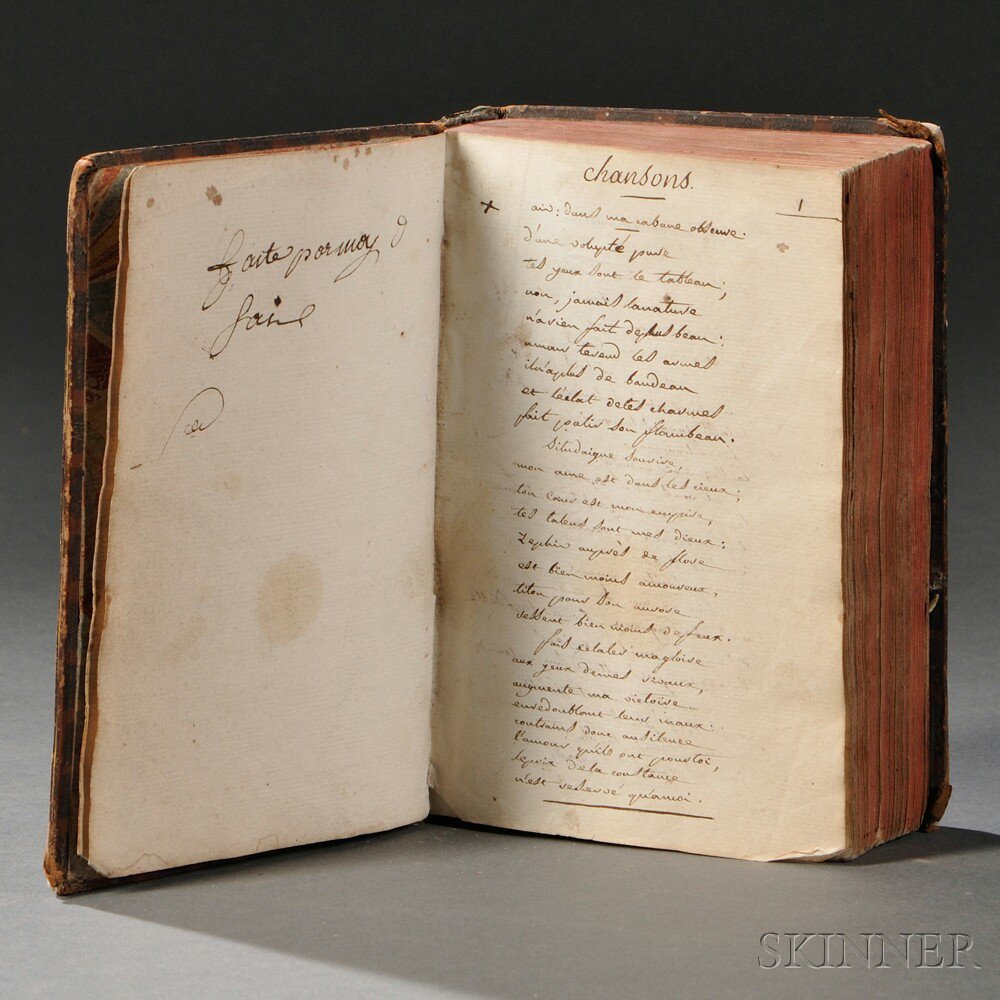 faite par moy
chansons.
1
+
air: dans ma cabane obscure.
d'une volupté pure
tes yeux sont le tableau;
non, jamais lanature
n'arien fait deplus beau:
amour terend ses armes
iln'aplus de bandeau
et l'éclat detes charmes
fait palir son flambeau.
Situdaigne sourire,
mon ame est dans les cieux;
ton coeur est mon empire,
tes talens sont mes dieux;
Zephir auprès de flore
est bien moins amoureux,
titon pour son aurore
ressent bien moins de feux.
fais eclater magloire
aux yeux demes rivaux,
augmente ma victoire
enredoublant leurs maux:
contrains donc ausilence
l'amour qu'ils ont pourtoi,
leprix dela constance
n'est reservé qu'amoi.
SKINNER